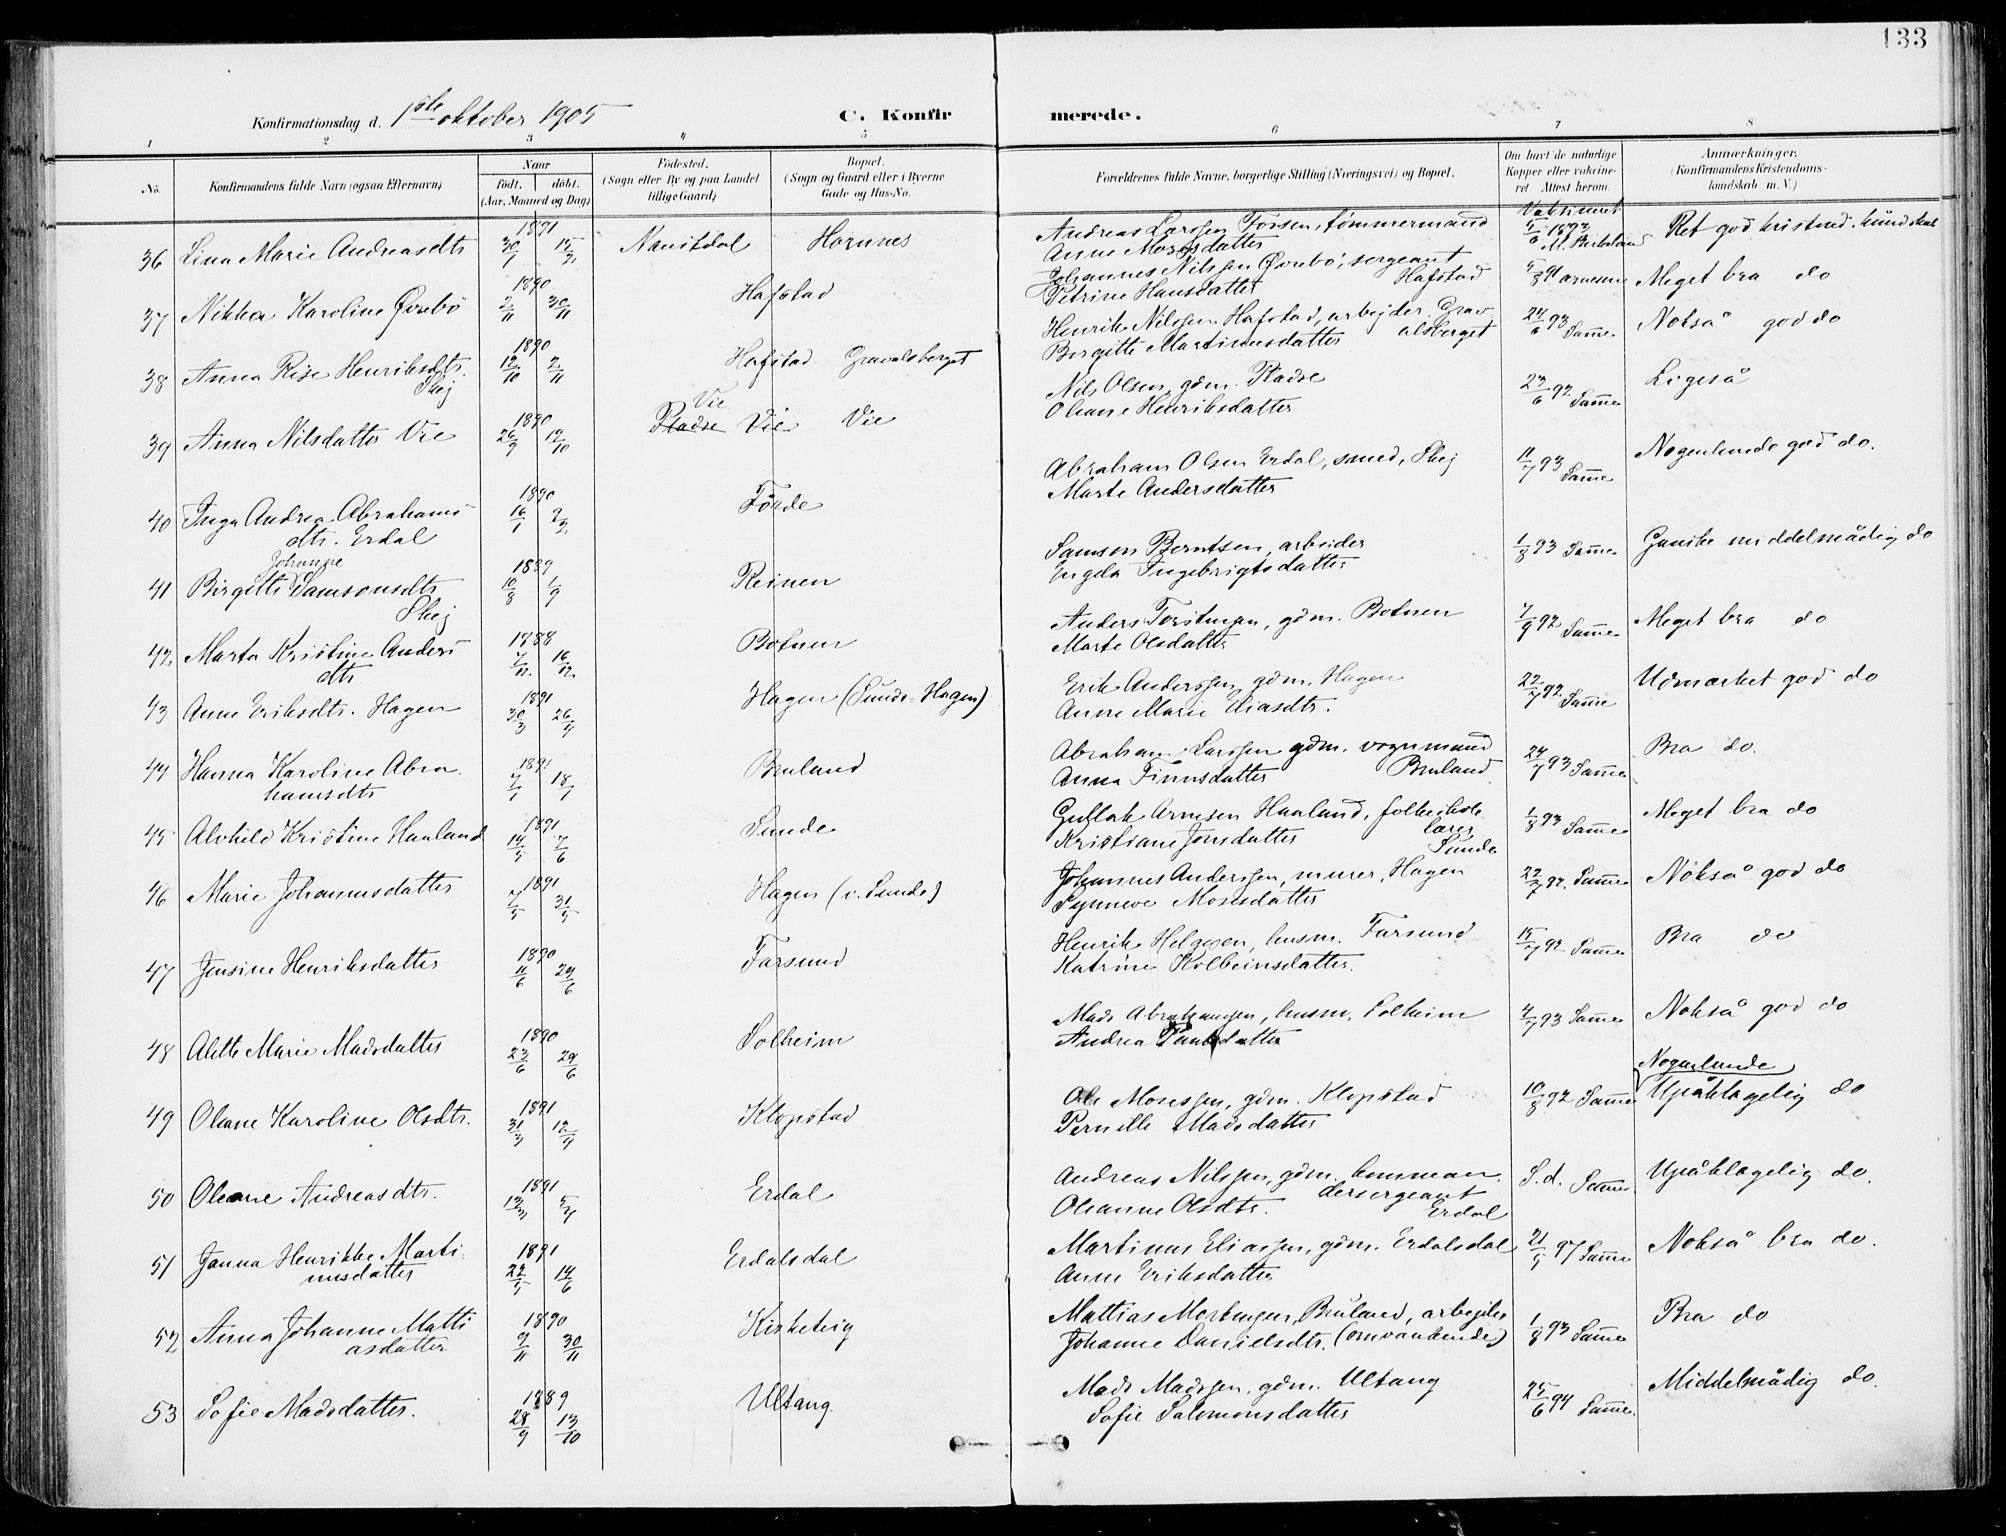 133
Konfirmationsdag d. 1ste oktober 1905
C. Konfirmerede.
1 2 3 4 5 6 7 8
No. Konfirmandens fulde Navn (ogsaa Efternavn) Naar født. døbt. (Aar, Maaned og Dag) Fødested. (Sogn eller By og paa Landet tillige Gaard) Bopæl. (Sogn og Gaard eller i Byerne Gade og Hus-No. Forældrenes fulde Navne, borgerlige Stilling (Næringsvei) og Bopæl. Om havt de naturlige Kopper eller vakcineret. Attest herom. Anmærkninger. (Konfirmandens Kristendomskundskab m. V.)
36 Lina Marie Andreasdtr 1891 30/1 15/2 Naustdal Hornnes Andreas Larssen tømmermand Vaksineret 1893 Ret god kristend. kundskab
Anne Mosesdatter
37 Nikka Karoline Øvrebö 1890 2/11 30/11 Hafstad Johannes Nilssen Øvrebö, sergeant Hafstad Meget bra do
Petrine Hansdatter
38 Anna Henriksdtr. Skej 1890 12/10 2/11 Hafstad Gravalsberget Henrik Nilssen Hafstad, arbejder Gravalsberget 24/6 93 Samme Nokså god do
Birgitte Martinusdatter
39 Anna Nilsdatter Vie 1890 26/9 12/10 Vie Vie Vie Nils Olsen, gdm. 23/6 92 Samme Ligeså
Oleane Henriksdatter
40 Inga Andrea Abrahamsdtr. Erdal 1890 16/1 2/2 Förde Abraham Olsen Erdal, smed, Skej 11/7 93 Samme Nogenlunde god do.
Marte Andersdatter
41 Birgitte Johanne Samsonsdtr Skej 1889 10/8 1/9 Reinen Samson Berntsen, arbeider 1/8 93 Samme Ganske middelmådig do
Ingebrigtsdatter
42 Marta Kristine Andersdtr 1888 7/12 16/12 Botnen Anders gdm. Botnen 7/9 92 Samme Meget bra do
Marte Olsdatter
43 Anne Eriksdtr. Hagen 1891 30/3 26/4 Hagen (Sunds-Hagen) Erik Anderssen, gdm. Hagen 22/7 92 Samme Udmærket god do
Anne Marie Eliasdtr.
44 Hanna Karoline Abrahamsdtr 1891 7/1 18/1 Bruland Abraham Larssen gdm. vognmand Bruland 24/7 93 Samme Bra do.
Anna Finnsdatter
45 Alvhild Kristine Haaland 1891 14/5 7/6 Sunde Gullak Arnesen Haaland, folkeskolelærer Sunde 1/8 93 Samme Meget bra do
Kristiane Jonsdatter
46 Marie Johannesdatter 1891 7/5 31/5 Hagen (i. Sunde) Johannes Anderssen, murer, Hagen 22/7 92. Samme Nokså god do
Synneve Mosesdatter
47 Jensine Henriksdatter 1890 11/6 29/6 Farsund Henrik Helgesen, husm. Farsund 15/7 92 Samme Bra do
Katrine Kolbeinsdatter.
48 Alette Marie Madsdatter 1890 23/6 29/6 Solheim Mads Abrahamsen, husm. Solheim 4/7 93 Samme Nokså god do
Andrea
49 Oleane Karoline Olsdtr. 1891 31/3 12/4 Klopstad Ole Mosessen, gdm. Klopstad 10/8 92 Samme Nogenlunde Upåklagelig do
Pernille Madsdatter
50 Oleane Andreasdtr. 1891 13/3 5/4 Erdal Andreas Nilssen, gdm. kommandersergeant Erdal S.d. Samme Upåklagelig do.
Oleanne Olsdtr.
51 Janna Henrikke Martinusdatter 1891 22/5 14/6 Erdalsdal Martinus Eliassen, gdm. Erdalsdal 21/5 97 Samme Nokså bra do.
Anne Eriksdatter
52 Anna Johanne Mattiasdatter 1890 9/11 30/11 Kirketeig Mattias Mortensen Bruland, arbejder 1/8 93 Samme Bra do
Johanne Danielsdtr. (omvankende)
53 Sofie Madsdatter. 1889 28/9 13/10 Ultang. Mads Madssen, gdm. Ultang 25/6 94 Samme. Middelmådig do.
Sofie Salomonsdatter